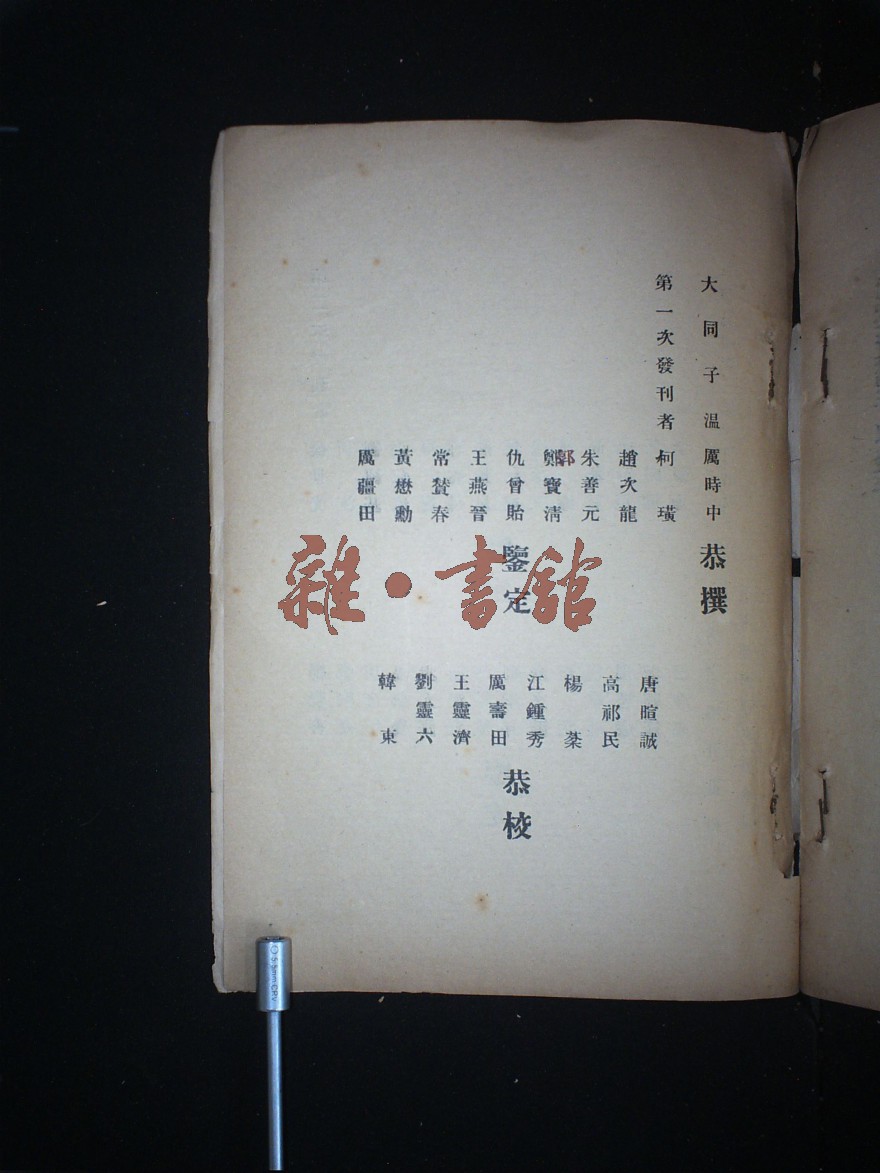 大同子溫厲時中恭撰
第一次發刊者柯璜
趙次龍
朱善元
鄭寶清
郭
仇曾貽
王燕晉
常贊春
黃懋勳
厲疆田
鑒定
唐暄誠
高祁民
楊棻
江鍾秀
厲壽田
王靈濟
劉靈六
韓東
恭校
雜·書館